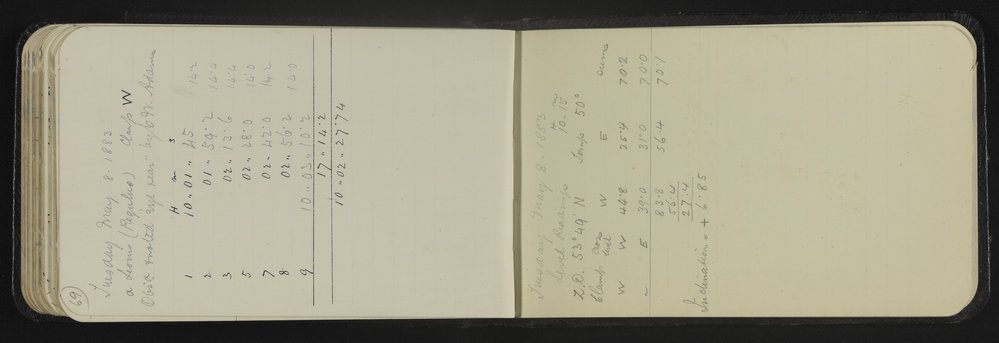 69
Tuesday May 8. 1883
α Leonis (Regulus) Clamp W
H m s
1 10 „ 01 „ 45 14.2
2 01 „ 59.2 14.4
3 02 „ 13.6 14.4
5 02 „ 28.0 14.0
7 02 „ 42.0 14.2
8 02 „ 56.2 14.0
9 10 „ 03 „ 10.2
17 „ 14.2
10 „ 02 „ 27.74
Tuesday May 8. 1883
Level
H m
10-15
Z.D. 53° 49' N Temp 50°
Clamp W E Sums
W W 44.8 25.4 70.2
„ E 39.0 31.0 70.0
83.8 56.4 70.1
56.4
27.4
Inclination = + 6.85